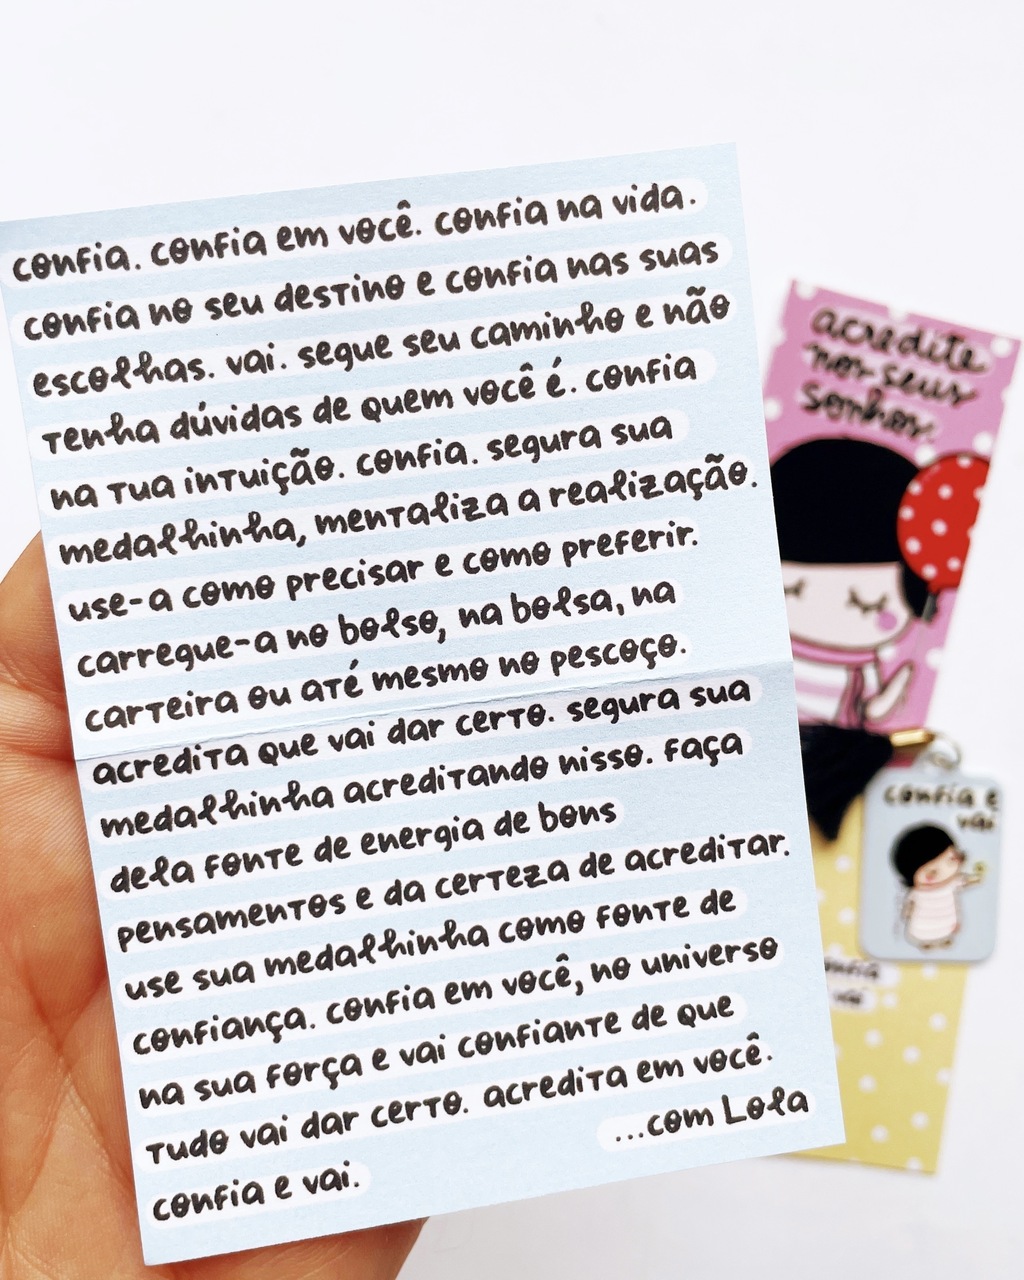 confia. confia em você. confia na vida.
confia no seu destino e confia nas suas
escolhas. vai. segue seu caminho e não
tenha dúvidas de quem você é. confia
na tua intuição. confia. segura sua
medalhinha, mentaliza a realização.
use-a como precisar e como preferir.
carregue-a no bolso, na bolsa, na
carteira ou até mesmo no pescoço.
acredita que vai dar certo. segura sua
medalhinha acreditando nisso. faça
dela fonte de energia de bons
pensamentos e da certeza de acreditar.
use sua medalhinha como fonte de
confiança. confia em você, no universo
na sua força e vai confiante de que
tudo vai dar certo. acredita em você.
confia e vai.
...com Lola
acredite
nos seus
sonhos.
confia e
vai